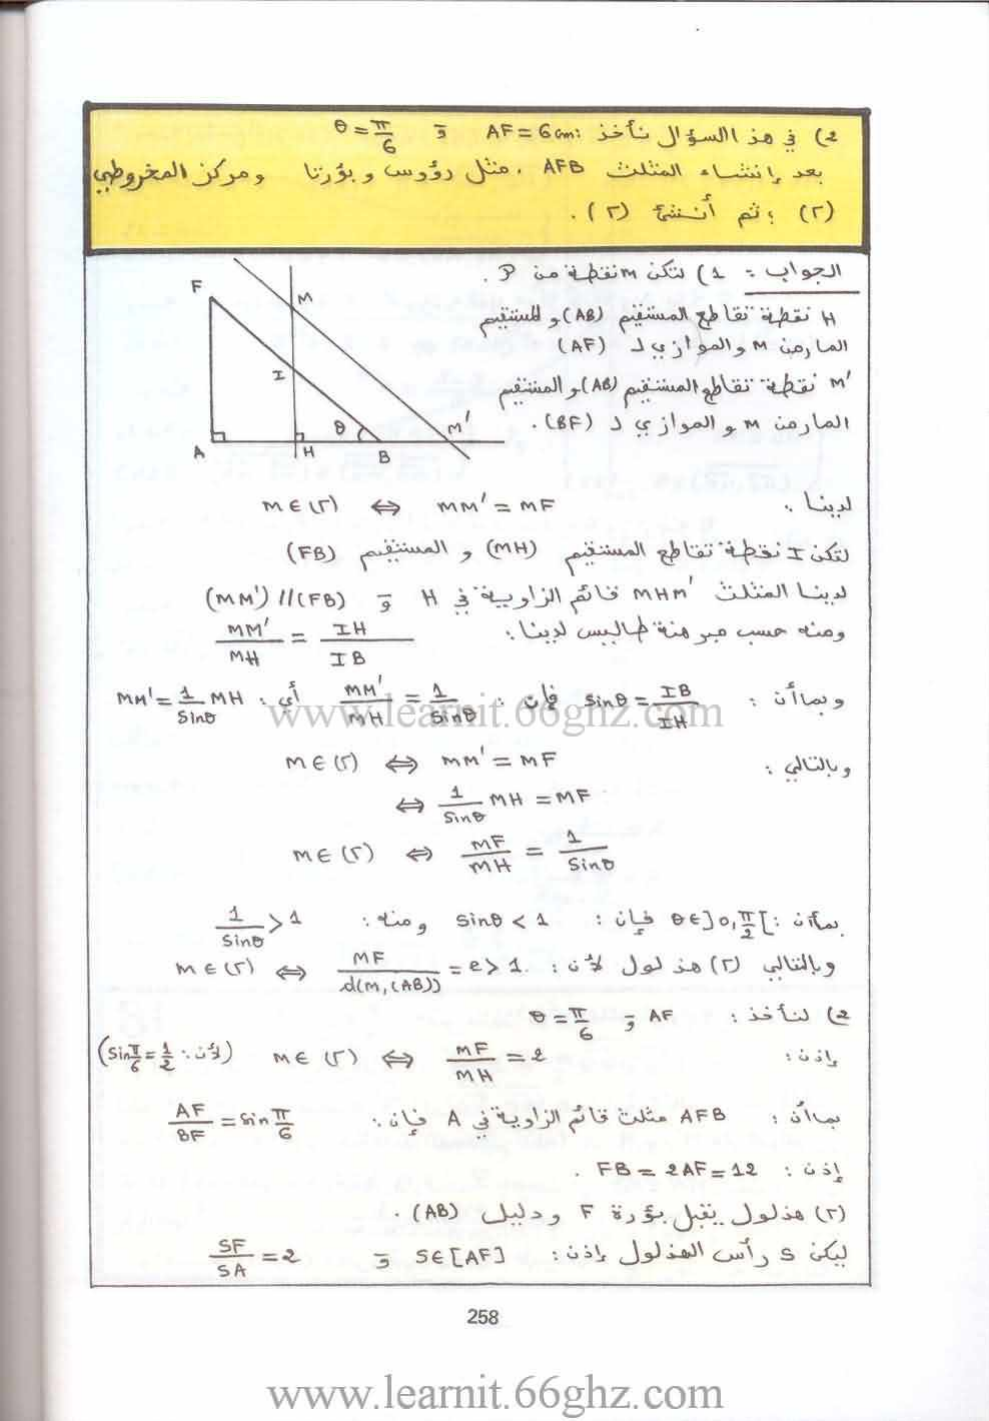 2) في هذا السؤال نأخذ : AF = 6 cm و θ = π/6
بعد إنشاء المثلث AFB ، مثل رؤوس و بؤرتا و مركز المخروطي
(Γ) ؛ ثم أنشئ (Γ) .
الجواب : 1) لتكن M نقطة من P .
H نقطة تقاطع المستقيم (AB) و المستقيم
المار من M و الموازي لـ (AF)
M' نقطة تقاطع المستقيم (AB) و المستقيم
المار من M و الموازي لـ (BF) .
F M I θ M' A H B
لدينا : M ∈ (Γ) ⇔ MM' = MF
لتكن I نقطة تقاطع المستقيم (MH) و المستقيم (FB)
لدينا المثلث MHM' قائم الزاوية في H و (MM') // (FB)
ومنه حسب مبرهنة طاليس لدينا : MM'/MH = IH/IB
و بما أن : sinθ = IB/IH فإن : MM'/MH = 1/sinθ أي : MM' = 1/sinθ MH
و بالتالي : M ∈ (Γ) ⇔ MM' = MF
⇔ 1/sinθ MH = MF
M ∈ (Γ) ⇔ MF/MH = 1/sinθ
بما أن : θ ∈ ]0, π/2[ فإن : sinθ < 1 ومنه : 1/sinθ > 1
و بالتالي (Γ) هذلول لأن : M ∈ (Γ) ⇔ MF/d(M,(AB)) = e > 1.
2) لنأخذ : AF و θ = π/6
إذن : M ∈ (Γ) ⇔ MF/MH = 2 (لأن : sin π/6 = 1/2)
بما أن : AFB مثلث قائم الزاوية في A فإن : AF/BF = sin π/6
إذن : FB = 2AF = 12 .
(Γ) هذلول يقبل بؤرة F و دليل (AB) .
ليكن S رأس الهذلول إذن : S ∈ [AF] و SF/SA = 2
258
www.learnit.66ghz.com
www.learnit.66ghz.com